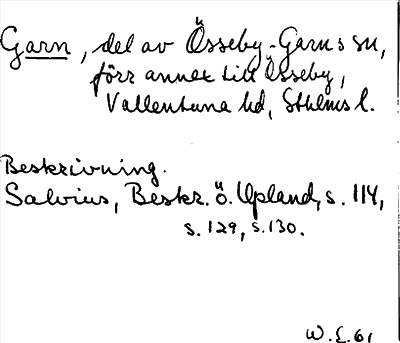 Garn, del av Össeby-Garns sn,
förr annex till Össeby,
Vallentuna hd, Sthlms l.
Beskrivning.
Salvius, Beskr. ö. Upland, s. 114,
s. 129, s. 130.
W.E. 61